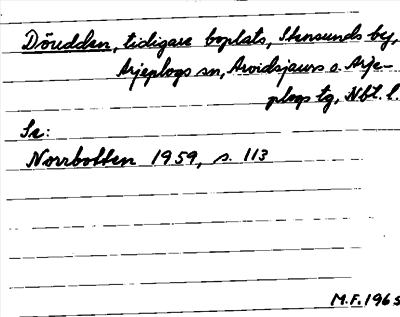 Döudden, tidigare boplats, Stensunds by,
Arjeplogs sn, Arvidsjaurs o. Arje-
plogs tg, Nbt. l.
Se:
Norrbotten 1959, s. 113
M.F. 1965